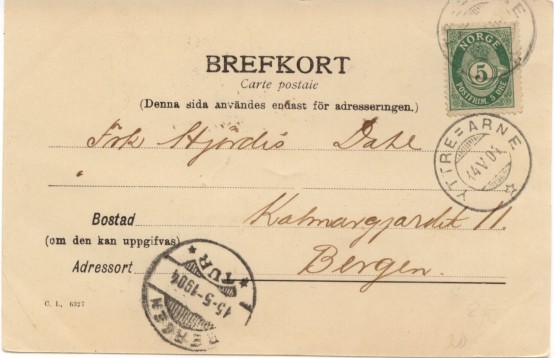 BREFKORT
Carte postaie
(Denna sida användes endast för adresseringen.)
NORGE
5
POSTFRIM. 5 ØRE
YTTRE=ARNE
14 V 04
Frk Hjördis Dahl
Bostad
(om den kan uppgifvas)
Kalmargjærdet 11.
Adressort
Bergen.
BERGEN
15-5-1904
TUR
C. L., 6327